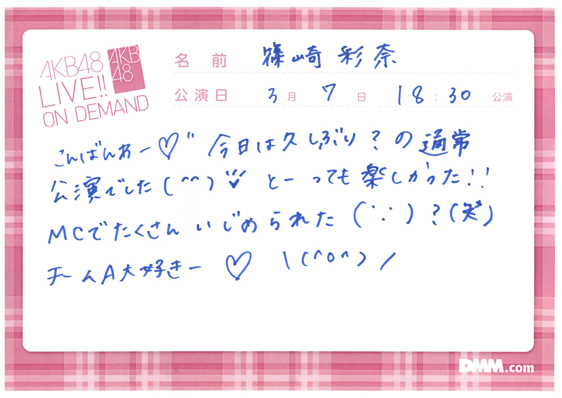 AKB48
LIVE!!
ON DEMAND
AKB
48
名前 篠崎彩奈
公演日 3月7日 18:30 公演
こんばんわー♡" 今日は久しぶり?の通常
公演でした(^^) とーっても楽しかった!!
MCでたくさんいじめられた(∵)?(笑)
チームA大好きー ♡ \(^o^)/
DMM.com